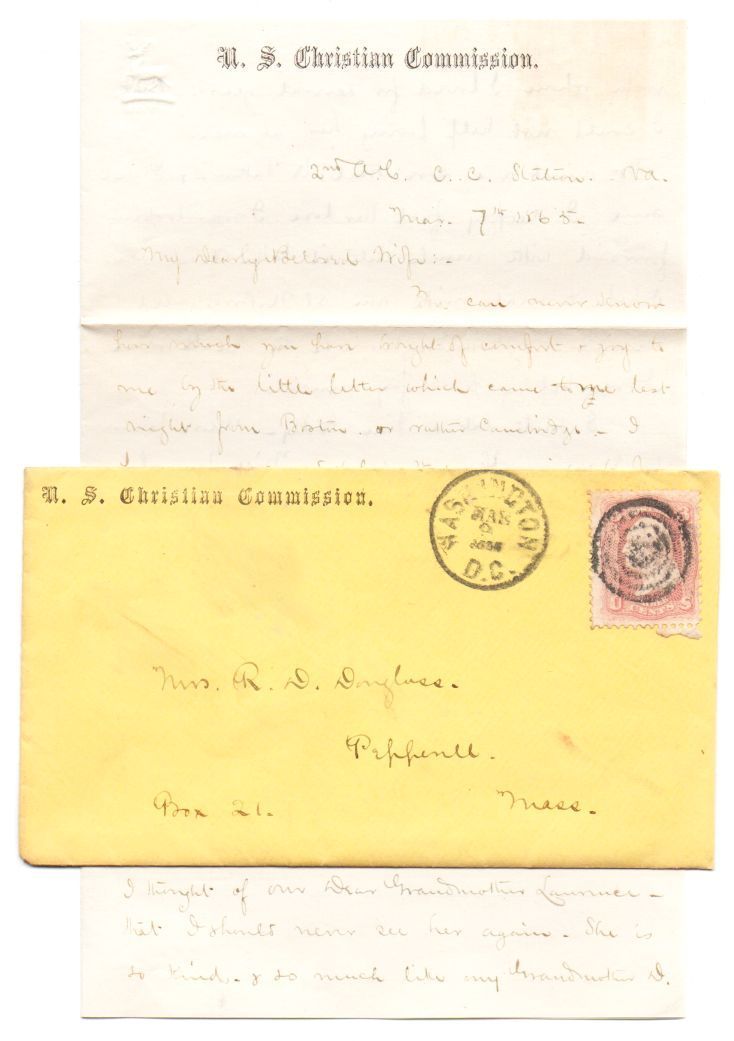 U. S. Christian Commission.
2nd A.C. C. C. Station. Va.
Mar. 7th 1865.
My Dearly Beloved Wife:-
can never know
how much you have brought of comfort & joy to
me by the little letter which came to me last
night from Boston. or rather Cambridge. - I
U. S. Christian Commission.
WASHINGTON
MAR
1865
D.C.
CENTS
Mrs. R. D. Douglass.
Pepperell.
Box 21.
Mass.
I thought of our Dear Grandmother Laurence -
that I should never see her again - She is
so kind - & so much like my Grandmother D.